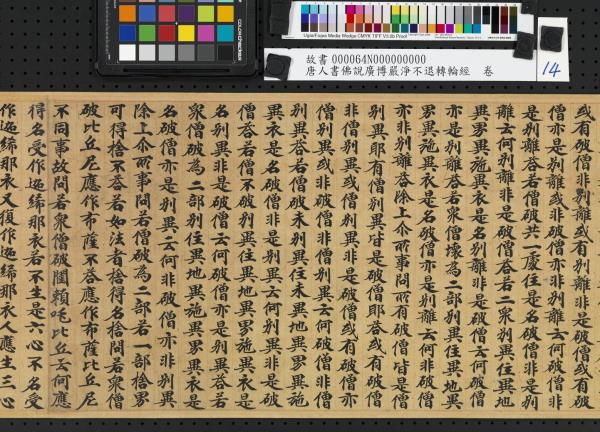 故書 000064N000000000
唐人書佛說廣博嚴淨不退轉輪經 卷
14
或有破僧非別離或有別離非破
僧亦是別離或非破僧非別離云何破僧非
是別離答若僧破共一處住是名破僧非別
離云何別離非是破僧答若二眾別異住異地
異界異施異衣是名別離非是破僧云何破僧
亦是別離答若眾僧壞為二部別異住異地異
界異施異衣是名破僧亦是別離云何非破僧
亦非別離答除上尒所事問所有破僧皆是僧
別異耶有僧別異皆是破僧耶答或有破僧
非僧別異或僧別異非是破僧或有破僧亦
僧別異或非破僧非僧別異云何破僧非僧
別異答若僧破未別異住未異地異界異施
異衣是名破僧非是別異云何別異非是破
僧答若僧不破別異住異地異界異施異衣是
名別異非是破僧云何破僧亦是別異答若
眾僧破為二部別住異地異施異界異衣是
名破僧亦是別異云何非破僧亦非別異
除上尒所事問若僧破為二部若一部捨界
可得捨不答若如法者捨得名捨問若眾僧
破比丘尼應作布薩不答應作布薩比丘尼
不同事故問若眾僧破闥賴吒比丘云何應
得名受作迦絺那衣若不生是六心不名受
作迦絺那衣又復作迦絺那衣人應生三心